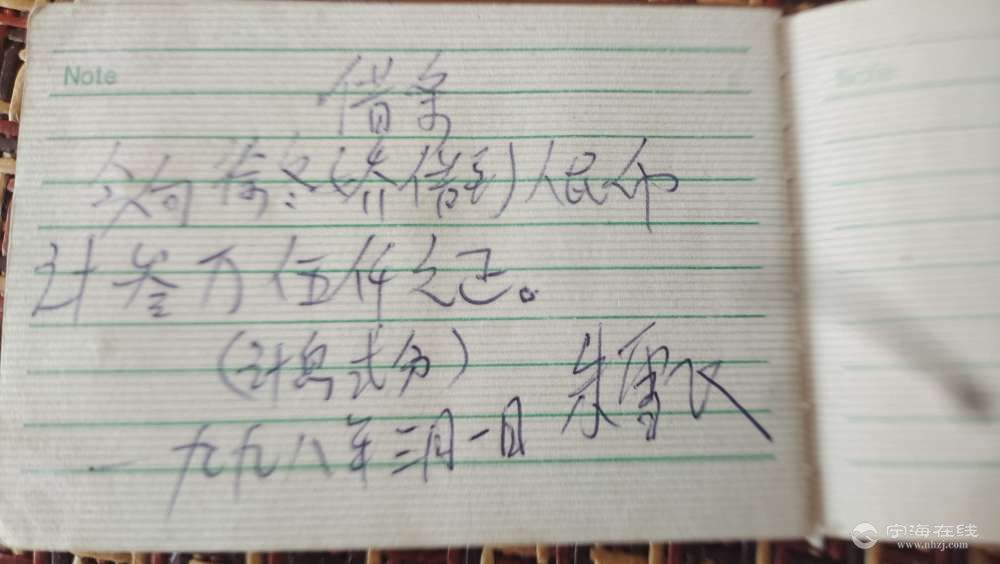 Note
借条
今向借到人民币
计叁万伍仟元正。
(计息式分)
朱雪
一九九八年三月一日
宁海在线
www.nhzj.com